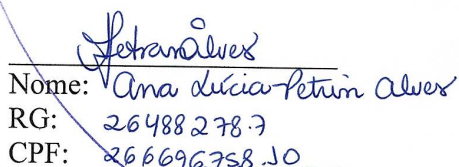 Nome: Ana Lúcia Petrin Alves
RG: 26488278.7
CPF: 266696758.10